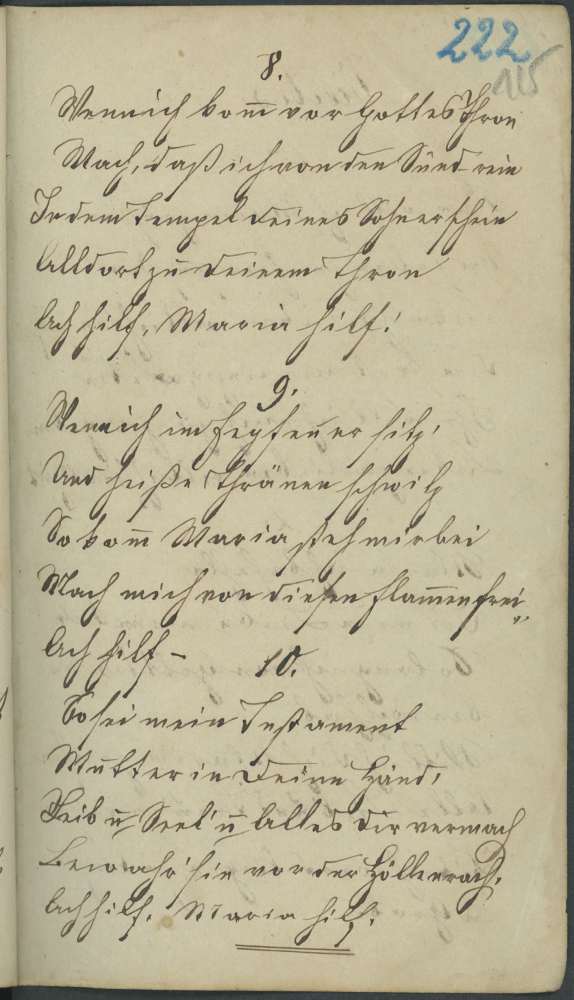 222
115
8.
Wenn ich kom̄ vor Gottes Thron
Mach, daß ich von den Sünd rein
In dem Tempel deines Sohn erschein
Alldort zu deinem Thron
Ach hilf, Maria hilf!
9.
Wenn ich im Fegfeuer sitz'
Und heiße Thränen schwitz
So kom̄ Maria steh mir bei
Mach mich von diesen Flam̄en frei
Ach hilf –
10.
So sei mein Testament
Mutter in Deine Händ'
Leib u Seel' u Alles dir vermach
Bewahr' sie vor der Höllenrach,
Ach hilf. Maria hilf.